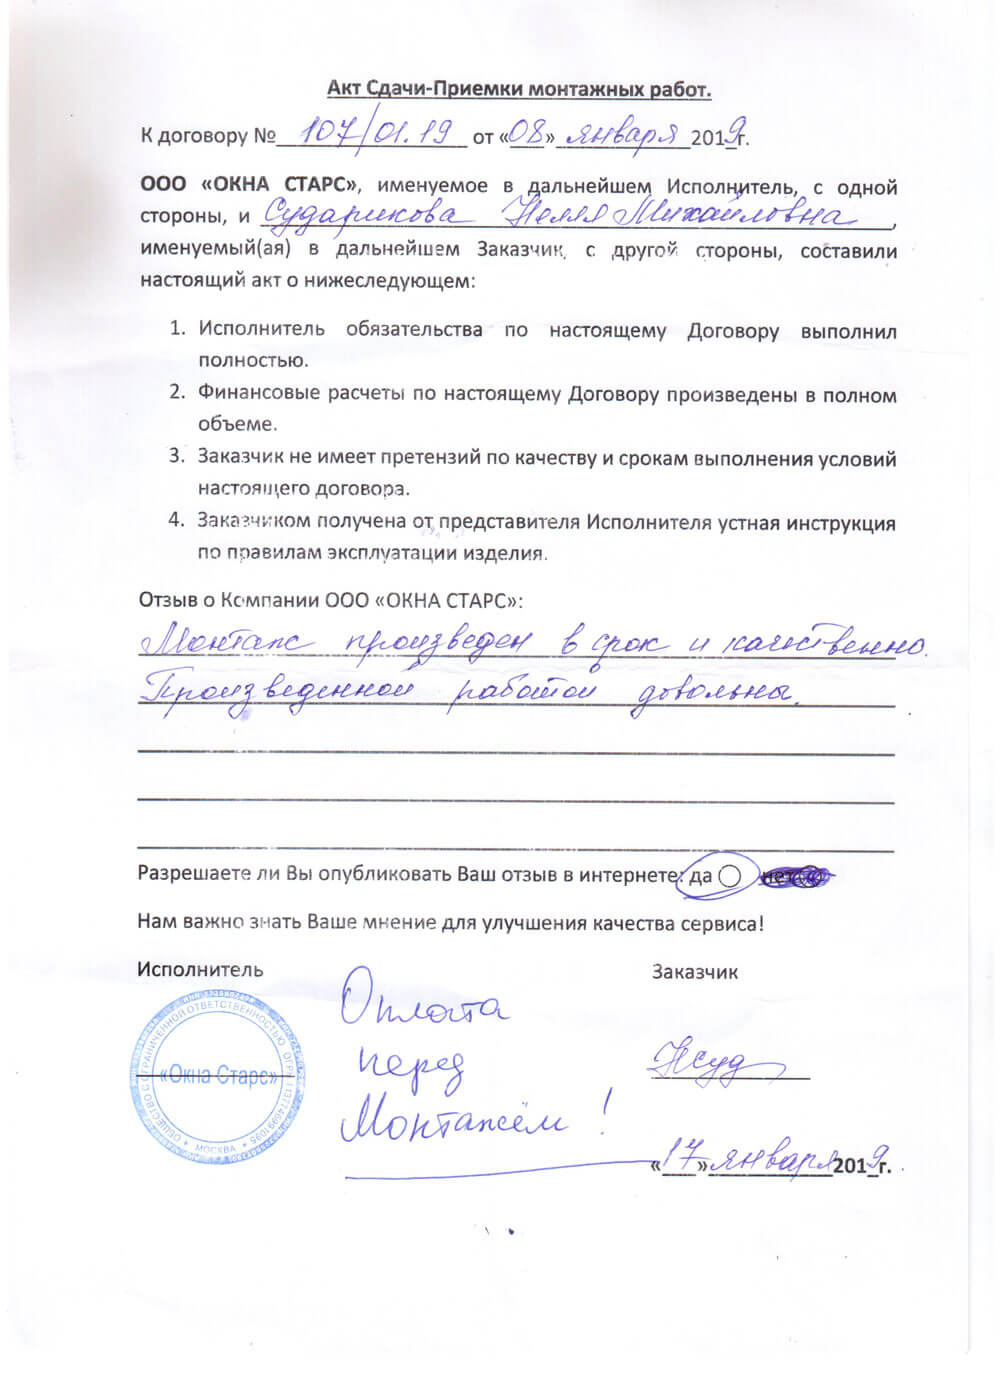 Акт Сдачи-Приемки монтажных работ.
К договору № 107/01.19 от «08» января 2019 г.
ООО «ОКНА СТАРС», именуемое в дальнейшем Исполнитель, с одной
стороны, и Сударикова Нелля Михайловна,
именуемый(ая) в дальнейшем Заказчик, с другой стороны, составили
настоящий акт о нижеследующем:
1. Исполнитель обязательства по настоящему Договору выполнил
полностью.
2. Финансовые расчеты по настоящему Договору произведены в полном
объеме.
3. Заказчик не имеет претензий по качеству и срокам выполнения условий
настоящего договора.
4. Заказчиком получена от представителя Исполнителя устная инструкция
по правилам эксплуатации изделия.
Отзыв о Компании ООО «ОКНА СТАРС»:
Монтаж произведен в срок и качественно.
Произведенной работой довольны.
Разрешаете ли Вы опубликовать Ваш отзыв в интернете: да нет
Нам важно знать Ваше мнение для улучшения качества сервиса!
Исполнитель
Заказчик
Оплата
перед
Монтажём!
ОБЩЕСТВО С ОГРАНИЧЕННОЙ ОТВЕТСТВЕННОСТЬЮ ОГРН 1137746991095
«Окна Старс»
* МОСКВА *
Нсуд
«17» января 2019 г.